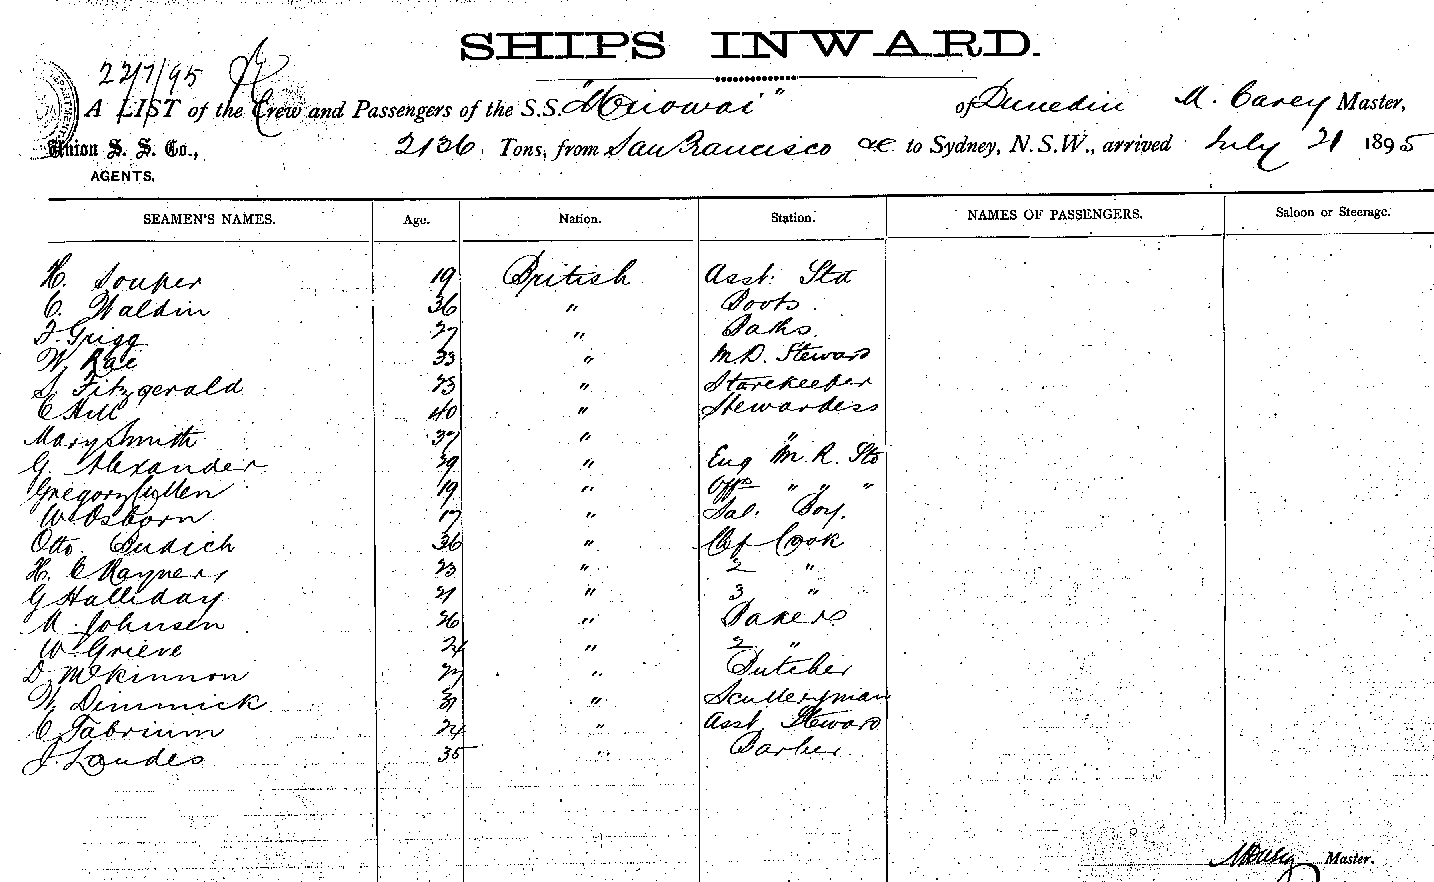 SHIPS INWARD.
22/7/95
A LIST of the Crew and Passengers of the S.S. "Monowai" of Dunedin M. Carey Master,
Union S. S. Co., 2136 Tons, from San Francisco &c to Sydney, N.S.W., arrived July 21 1895
AGENTS.
SEAMEN'S NAMES. Age. Nation. Station. NAMES OF PASSENGERS. Saloon or Steerage.
H. Souper 19 British Asst. Std
C. Waldin 36 " Boots
F. Grigg 27 " Baths
W. Rae 33 " M.R. Steward
S. Fitzgerald 23 " Storekeeper
C Hill 40 " Stewardess
Mary Smith 37 " "
G. Alexander 29 " Eng M. R. Std
Gregory Cullen 19 " Offrs " " "
W. Osborn 17 " Sal. Boy.
Otto Budich 36 " Chf Cook
H. C Rayner 23 " 2 "
G Halliday 21 " 3 "
M. Johnsen 26 " Bakers
W Grieve 24 " 2 "
D. McKinnon 27 " Butcher
W. Dimmick 31 " Sculleryman
C Fabrium 24 " Asst. Steward
J. Loudes 35 " Barber
M Carey Master.